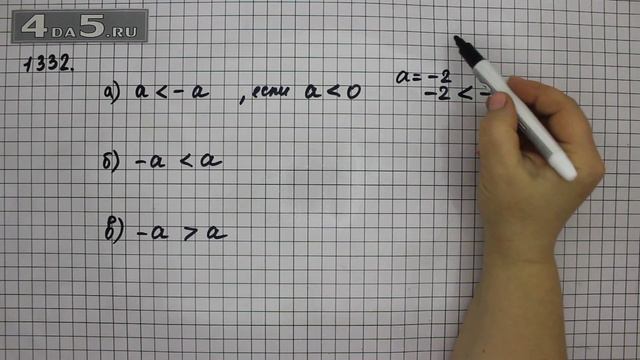 4DA5.RU
1332.
а) a < - a , если a < 0
a = -2
-2 < -
б) -a < a
в) -a > a